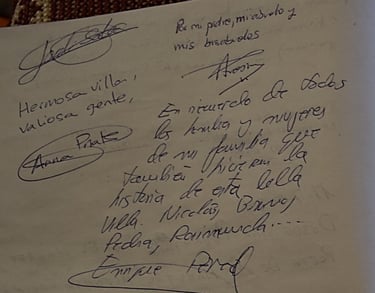 Por mi padre, mi abuelo y
mis
Hermosa villa,
valiosa gente,
Anna
En recuerdo de todos
los hombres y mujeres
de mi familia que
también hicieron la
historia de esta bella
Villa. Nicolás, Bruno,
Pedra, Raimunda....
Enrique